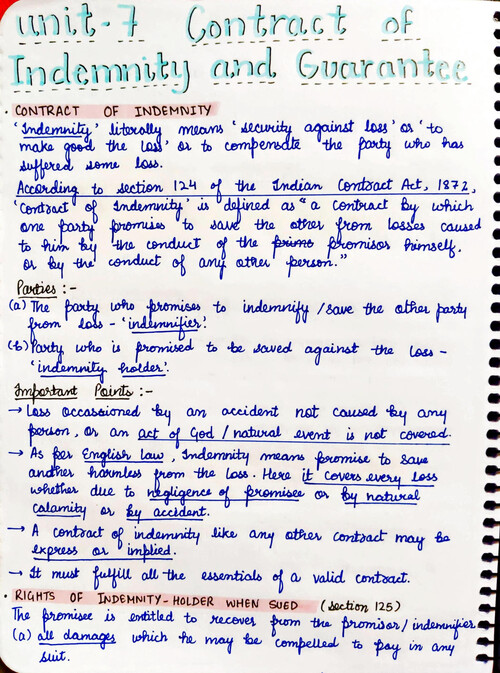 unit-7 Contract of
Indemnity and Guarantee
· CONTRACT OF INDEMNITY
'Indemnity' literally means 'security against loss' or 'to
make good the loss' or to compensate the party who has
suffered some loss.
According to section 124 of the Indian Contract Act, 1872,
'Contract of Indemnity' is defined as "a contract by which
one party promises to save the other from losses caused
to him by the conduct of the promisor himself,
or by the conduct of any other person."
Parties :-
(a) The party who promises to indemnify/save the other party
from loss - 'indemnifier'.
(b) Party who is promised to be saved against the loss -
'indemnity holder'.
Important Points :-
→ Loss occassioned by an accident not caused by any
person, or an act of God / natural event is not covered.
→ As per English law, Indemnity means promise to save
another harmless from the loss. Here it covers every loss
whether due to negligence of promisee or by natural
calamity or by accident.
→ A contract of indemnity like any other contract may be
express or implied.
→ It must fulfill all the essentials of a valid contract.
· RIGHTS OF INDEMNITY-HOLDER WHEN SUED (section 125)
The promisee is entitled to recover from the promisor/indemnifier
(a) all damages which he may be compelled to pay in any
suit.